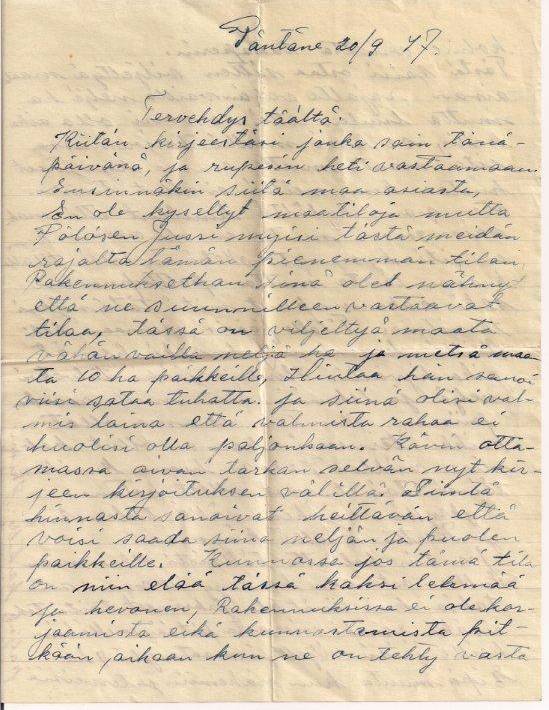 Päntäne 20/9 47.
Tervehdys täältä.
Kiitän kirjeestäsi jonka sain tänä-
päivänä, ja rupesin heti vastaamaan.
Ensinnäkin siitä maa asiasta,
En ole kysellyt maatiloja mutta
Pölösen Jussi myisi tästä meidän
rajalta tämän pienemmän tilan
Rakennuksethan sinä olet nähnyt
että ne suunnilleen vastaavat
tilaa, tässä on viljeltyä maata
vähän vailla neljä ha ja metsä maa
ta 10 ha paikkeille, Hintaa hän sanoi
viisi sataa tuhatta. ja siinä olisi val-
mis laina että valmista rahaa ei
huolisi olla paljonkaan. Kävin otta-
massa aivan tarkan selvän nyt kir-
jeen kirjoituksen välillä,
hinnasta sanoivat heittävän että
voisi saada siinä neljän ja puolen
paikkeille. Kunnossa jos tämä tila
on niin elää tässä kaksi lehmää
ja hevonen, Rakennuksissa ei ole kor-
jaamista eikä kunnostamista pit-
kään aikaan kun ne on tehty vasta